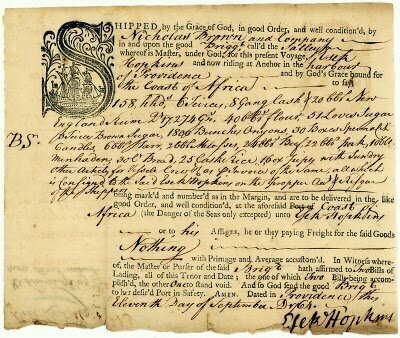 SHIPPED, by the Grace of God, in good Order, and well condition'd, by
Nicholas Brown and Company
in and upon the good Brigt call'd the Sally
whereof is Master, under God, for this present Voyage, Esek
Hopkins and now riding at Anchor in the harbour
of Providence and by God's Grace bound for
the Coast of Africa to say
158 hhd, 6 Tierces, 8 Gang Cask & 20 bbs New
England Rum 40 bbs flour, 51 Loves Sugar
Brown Sugar, 1800 Bunches Onyons, 30 Boxes
BS. Candles, 6 bbs Tarr, 20 bbs Molasses, 2 bbs Beef, 22 bbs Pork, 10 bbs
Menhaden, 30 C Bread, 25 Caske Rice, with Sundry
other for the as Invoice of the Same, all which
is Consignd to the Said Esek Hopkins on the Proper and Risque
of the Shippers
being mark'd and number'd as in the Margin, and are to be delivered, in the like
good Order, and well condition'd, at the aforesaid Port of Coast of
Africa (the Danger of the Seas only excepted) unto Esek Hopkins
or to his Assigns, he or they paying Freight for the said Goods
Nothing
with Primage and Average accustom'd. In Witness where-
of, the Master or Purser of the said Brigt hath affirmed to Two Bills of
Lading, all of this Tenor and Date; the one of which Two Bills being accom-
plish'd, the other One to stand void. And so God send the good Brigt
to her desir'd Port in Safety. AMEN. Dated in Providence this
Eleventh Day of September 1764
Esek Hopkins